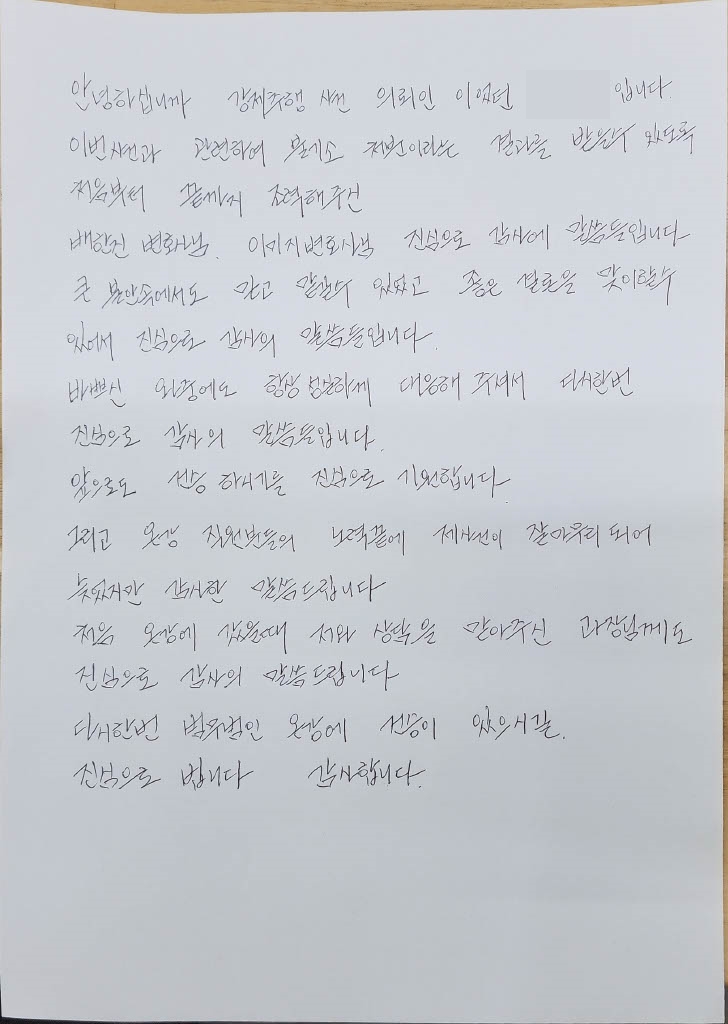 안녕하십니까 강제추행 사건 의뢰인 이었던 입니다.
이번사건과 관련하여 불기소 처분이라는 결과를 받을수 있도록
처음부터 끝까지 조력해주신
배한진 변호사님. 이키지변호사님 진심으로 감사에 말씀들입니다
큰 불안속에서도 믿고 맡길수 있었고 좋은 결론을 맞이할수
있어서 진심으로 감사의 말씀들입니다.
바쁘신 와중에도 항상 성실하게 대응해 주셔서 다시한번
진심으로 감사의 말씀들입니다.
앞으로도 선승 하시기를 진심으로 기원합니다.
그리고 온강 직원분들의 노력끝에 제사건이 잘마무리 되어
늦었지만 감사한 말씀드립니다
처음 온강에 갔을때 저와 상담을 맡아주신 과장님께도
진심으로 감사의 말씀드립니다.
다시한번 법무법인 온강에 선승이 있으시길.
진심으로 빕니다 감사합니다.